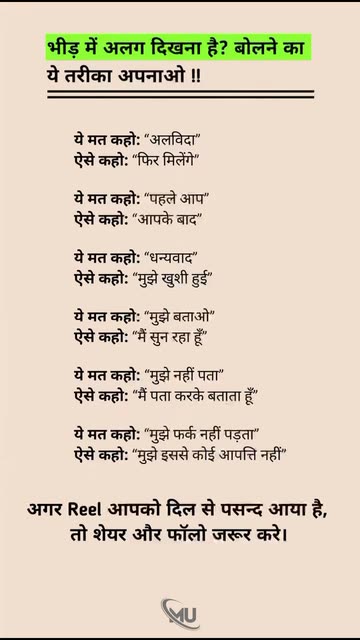 भीड़ में अलग दिखना है? बोलने का
ये तरीका अपनाओ !!
ये मत कहो: “अलविदा”
ऐसे कहो: “फिर मिलेंगे”
ये मत कहो: “पहले आप”
ऐसे कहो: “आपके बाद”
ये मत कहो: “धन्यवाद”
ऐसे कहो: “मुझे खुशी हुई”
ये मत कहो: “मुझे बताओ”
ऐसे कहो: “मैं सुन रहा हूँ”
ये मत कहो: “मुझे नहीं पता”
ऐसे कहो: “मैं पता करके बताता हूँ”
ये मत कहो: “मुझे फर्क नहीं पड़ता”
ऐसे कहो: “मुझे इससे कोई आपत्ति नहीं”
अगर Reel आपको दिल से पसन्द आया है,
तो शेयर और फॉलो जरूर करे।
MU